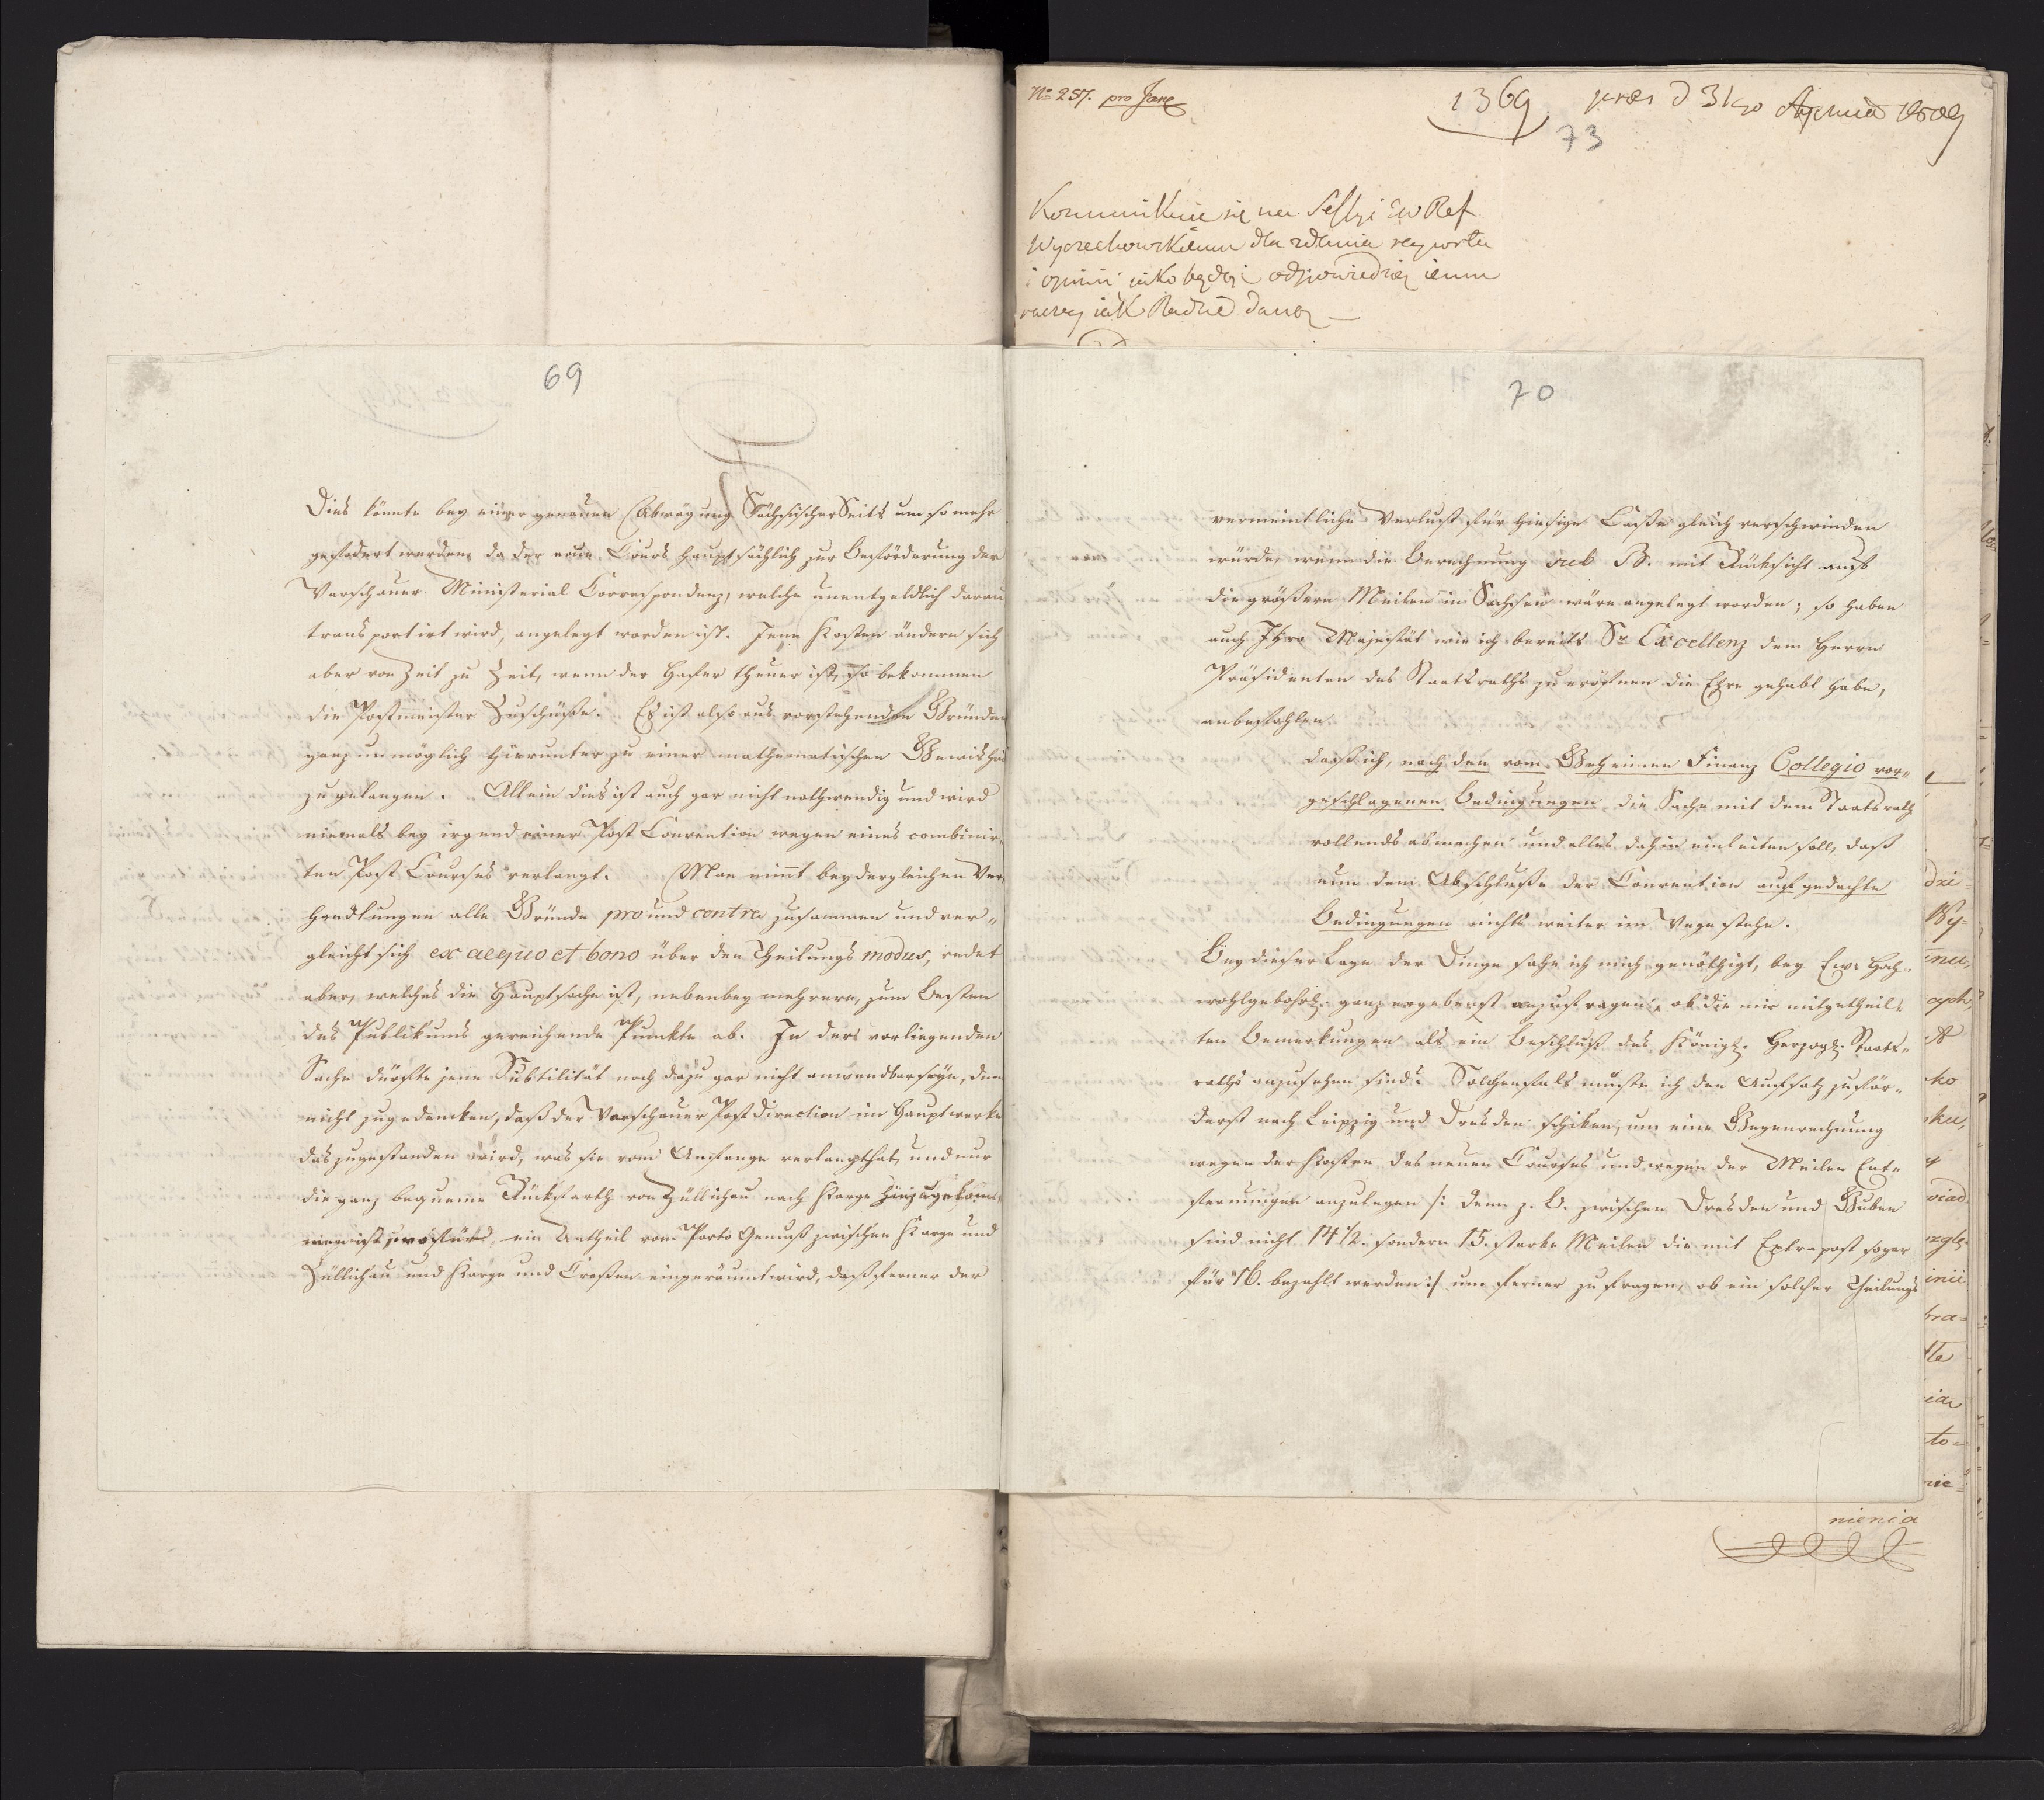 69
Dies könnte bey einer genauen Abwägung Sächsischer Seits um so mehr
gefodert werden, da der neue Cours hauptsächlich zur Beförderung der
Warschauer Ministerial Correspondenz, welche unentgeldlich darau
transportirt wird, angelegt worden ist. Jene Kosten ändern sich
aber von Zeit zu Zeit, wenn der Hafer theuer ist, so bekommen
die Postmeister Zuschüße. Es ist also aus vorstehenden Gründen
ganz unmöglich hierunter zu einer mathematischen Gewisheit
zu gelangen. Allein dies ist auch gar nicht nothwendig und wird
niemals bey irgend einer Post Convention wegen eines combinir-
ten Post Courses verlangt. Man nimt bey dergleichen Ver-
handlungen alle Gründe pro und contra zusammen und ver-
gleicht sich ex aequo et bono über den Theilungs modus, redet
aber, welches die Hauptsache ist, nebenbey mehrere, zum Besten
des Publikums gereichende Punkte ab. In der vorliegenden
Sache dürfte jene Subtilität noch dazu gar nicht anwendbar seyn, denn
nicht zugedencken, daß der Warschauer Post Direction im Hauptwerke
das zugestanden wird, was sie vom Anfange verlangt hat, und nur
die ganz bequeme Rückfarth von Züllichau nach Karge hinzugekom-
men ist, ein Antheil vom Porto Genuß zwischen Karge und
Züllichau und Karge und Croßen eingeräumt wird, daß ferner der
No 257. pro Jane
1369 præs d 31go Stycznia 1809
73
Kommunikuie się na Sessyi Ew Ref
Wyczechowskiemu dla zdania rapportu
i opinii jako będzie odpowiedzieć iemu
raczey iak Radzie daną
70
vermeintliche Verlust für hiesige Casse gleich verschwinden
würde, wenn die Berechnung sub B. mit Rücksicht auf
die größern Meilen in Sachsen wäre angelegt worden; so haben
auch Ihro Majestät wie ich bereits Sr Excellenz dem Herrn
Präsidenten des Staatsraths zu eröfnen die Ehre gehabt habe,
anbefohlen.
daß ich, nach den vom Geheimen Finanz Collegio vor-
geschlagenen Bedingungen die Sache mit dem Staatsrath
vollends abmachen und alles dahin einleiten soll, daß
nun dem Abschluße der Convention auf gedachte
Bedingungen nichts weiter im Wege stehe.
Bey dieser Lage der Dinge sehe ich mich genöthigt, bey Ew. Hoch-
wohlgebohrn. ganz ergebenst anzufragen, ob die mir mitgetheil-
ten Bemerkungen als ein Beschluß des Königl. Herzogl. Staats-
raths anzusehen sind? Solchenfals müste ich den Aufsatz zuför-
derst nach Leipzig und Dresden schiken, um eine Gegenrechnung
wegen der Kosten des neuen Courses und wegen der Meilen Ent-
fernungen anzulegen /: denn z. B. zwischen Dresden und Guben
sind nicht 14 1/2. sondern 15. starke Meilen die mit Extrapost sogar
für 16. bezahlt werden :/ um ferner zu fragen, ob ein solcher Theilungs
dzi-
Wy-
inii
to-
nie-
nienia